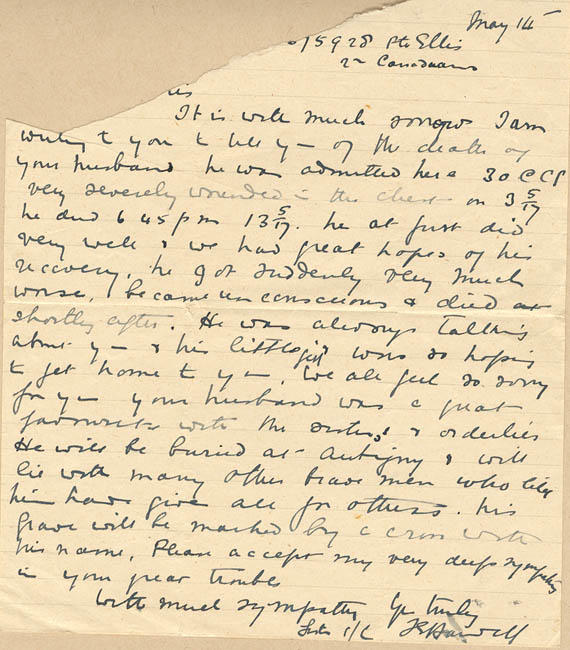 May 14
15928 Pte Ellis
2n Canadians
It is with much sorrow I am
writing to you to tell you of the death of
your husband he was admitted here 30 CCS
very severely wounded in the chest on 3 5/17
he died 6 45 pm 13 5/17. he at first did
very well & we had great hopes of his
recovery, he got suddenly very much
worse, became unconscious & died
shortly after. He was always talking
about you & his little girl was so hoping
to get home to you, we all feel so sorry
for you your husband was a great
favourite with the sisters & orderlies
He will be buried at Aubigny & will
lie with many other brave men who like
him have give all for others. his
grave will be marked by a cross with
his name, Please accept my very deep sympathy
in your great trouble
With much sympathy Yrs truly
Sister I/C